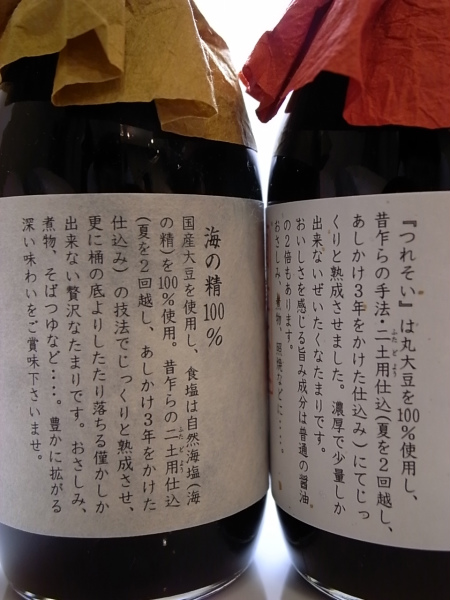 海の精100%
国産大豆を使用し、食塩は自然海塩(海
の精)を100%使用。昔乍らの二土用仕込
(夏を2回越し、あしかけ3年をかけた
仕込み)の技法でじっくりと熟成させ、
更に桶の底よりしたたり落ちる僅かしか
出来ない贅沢なたまりです。おさしみ、
煮物、そばつゆなど・・・・。豊かに拡がる
深い味わいをご賞味下さいませ。
『つれそい』は丸大豆を100%使用し、
昔乍らの手法・二土用仕込(夏を2回越し、
あしかけ3年をかけた仕込み)にてじっ
くりと熟成させました。濃厚で少量しか
出来ないぜいたくなたまりです。
おいしさを感じる旨み成分は普通の醤油
の2倍もあります。
おさしみ、煮物、照焼などに・・・・。